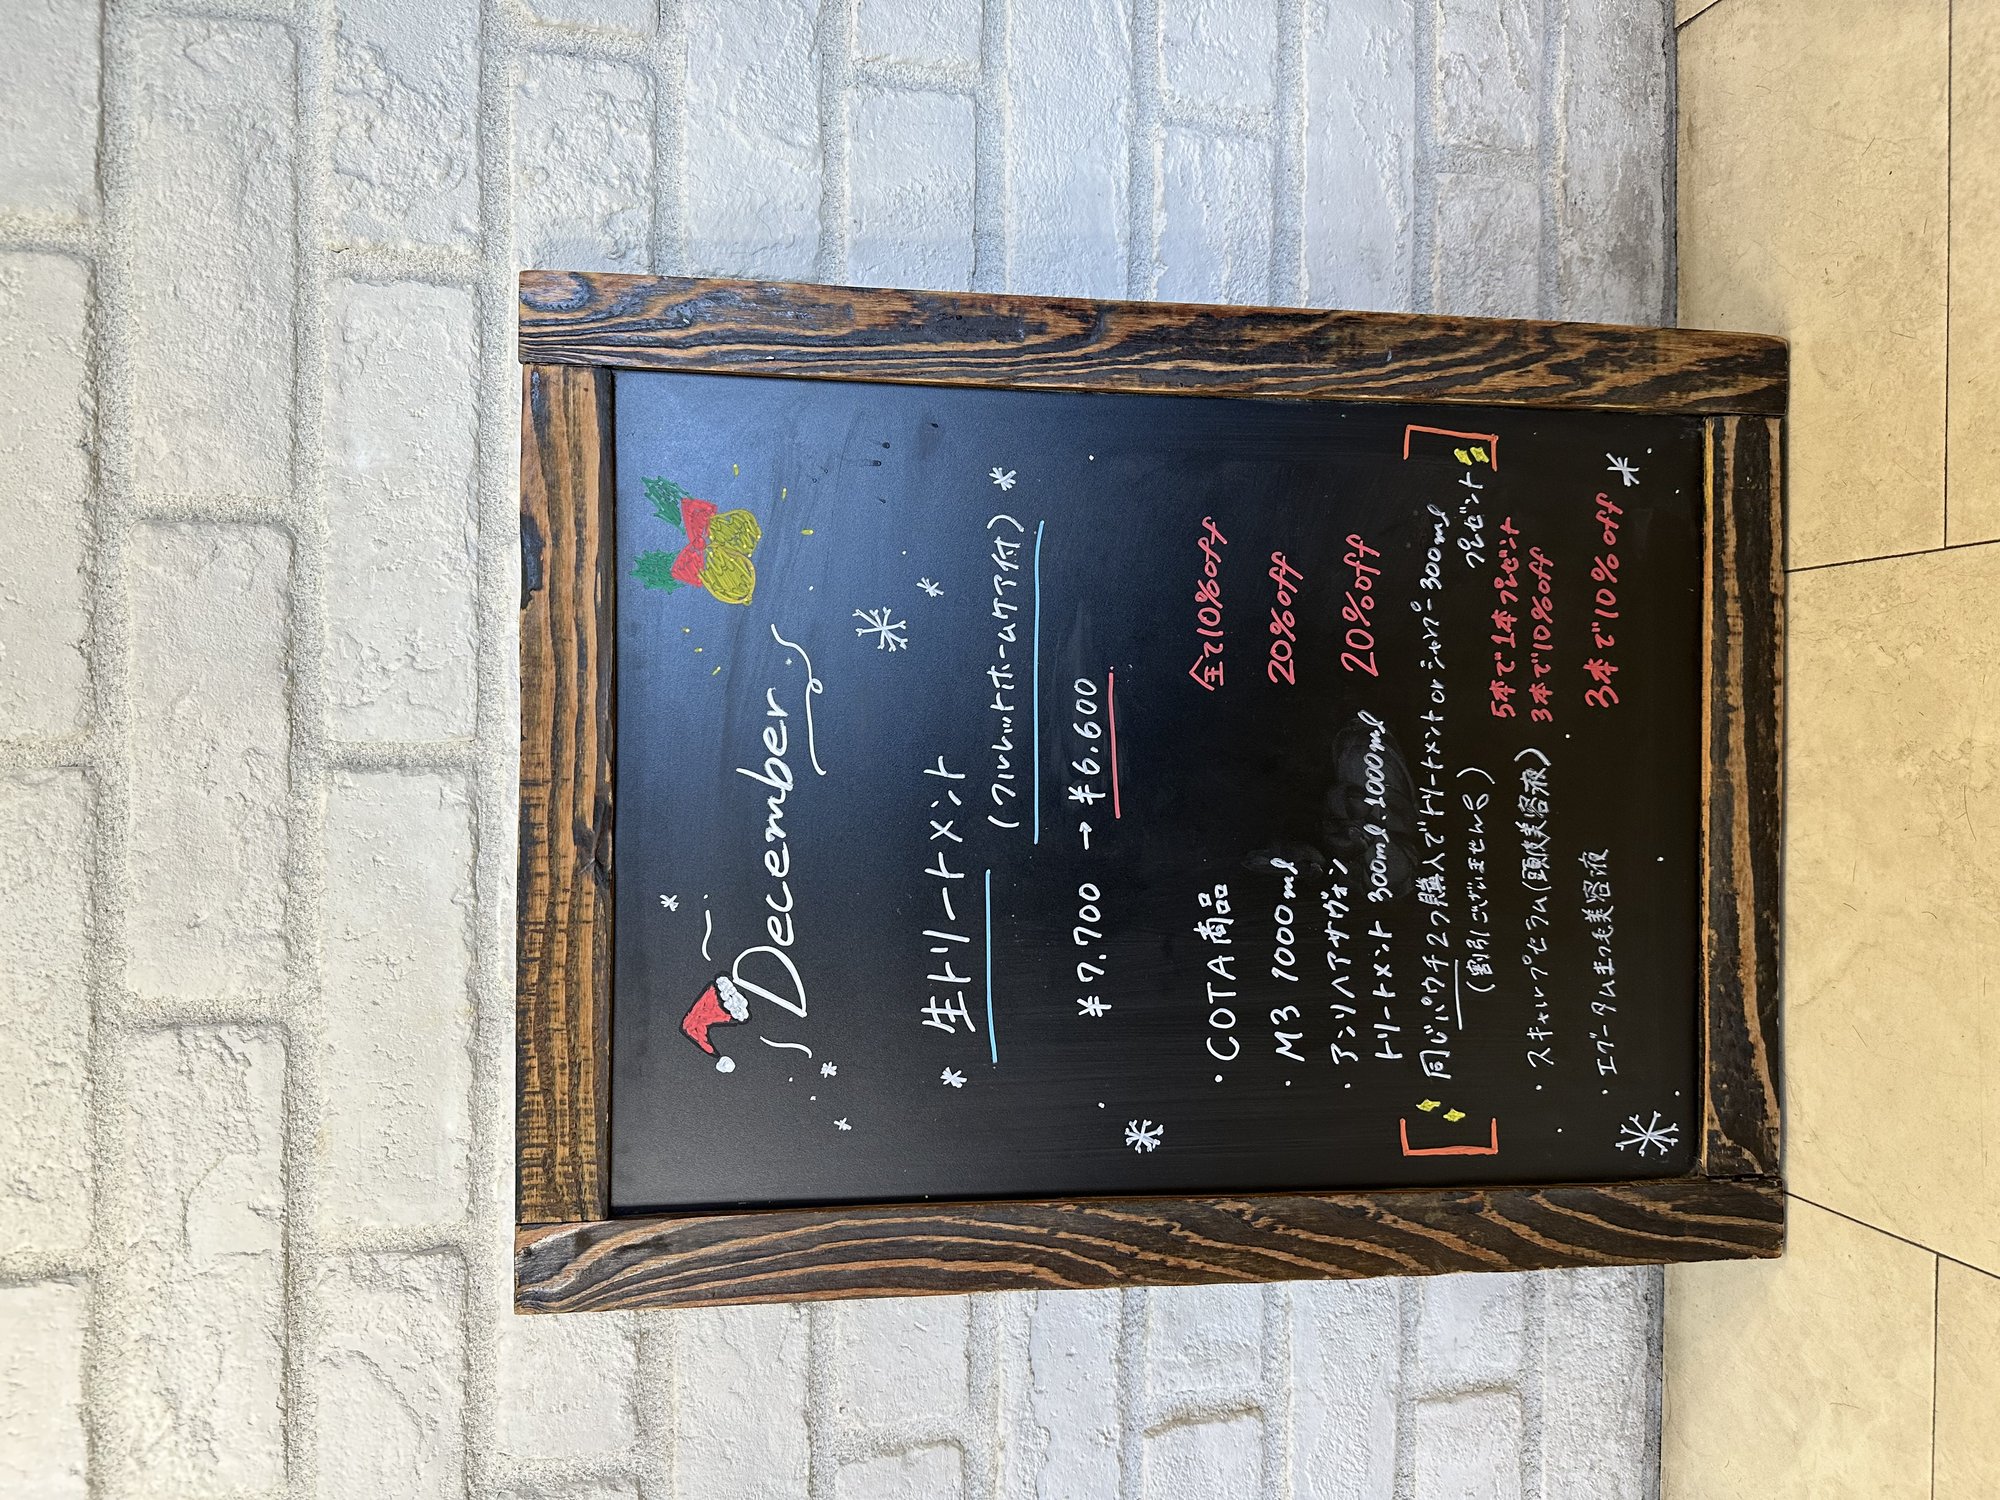 December
*生トリートメント
(フルレットホームケア付)
¥7.700 → ¥6.600
・COTA商品 全て10%off
・M3 1000ml 20%off
・アンリハアサヴォン
トリートメント 300ml.1000ml 20%off
同じパウチ2つ購入でトリートメントorシャンプー300ml
プレゼント
(割引はございません)
5本で1本プレゼント
・スキャルプセラム(頭皮美容液) 3本で10%off
・エグータムまつ毛美容液 3本で10%off